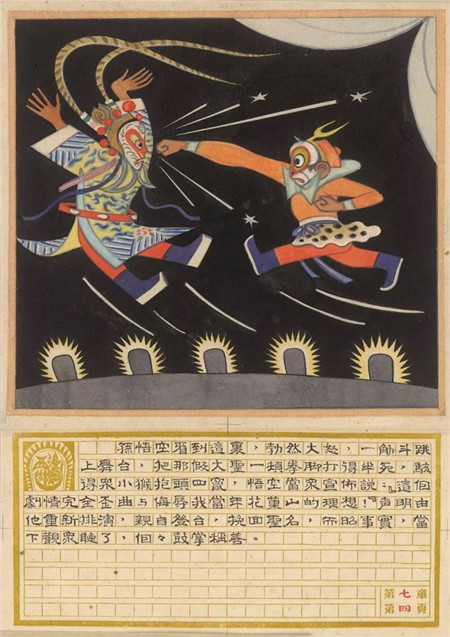 孫悟空看到這裏，勃然大怒，一觔斗，跳
上舞台，把那假大聖，一頓拳脚，打得半死，駭
得衆小猴抱頭四竄，悟空當衆宣佈說：「這個
劇情完全歪曲与侮辱我當年花菓山的理想！」声明由
他重新排演，親身登台，挽回聖名，而昭事實，當
下觀衆聽了，個々鼓掌稱善。
第七章
第四頁